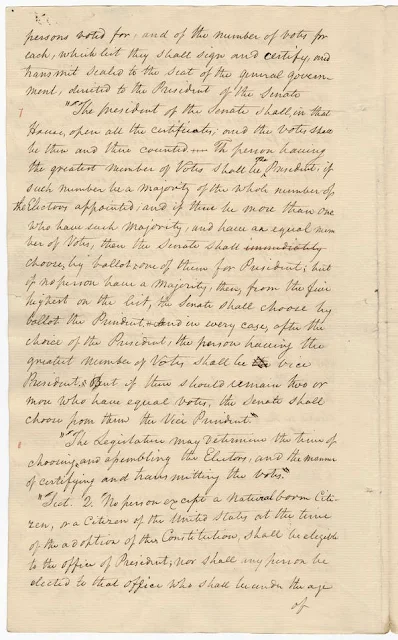 persons voted for, and of the number of votes for
each, which list they shall sign and certify, and
transmit sealed to the seat of the general govern
ment, directed to the President of the Senate
"The president of the Senate shall, in that
House, open all the certificates; and the votes shall
be then and there counted— The person having
the greatest number of Votes shall be the President, if
such number be a majority of the whole number of
the Electors appointed, and if there be more than one
who have such Majority, and have an equal num
ber of Votes, then the Senate shall immediately
choose, by ballot, one of them for President; but
if no person have a Majority, then, from the five
highest on the list, the Senate shall choose by
ballot the President, And in every case, after the
choice of the President, the person having the
greatest number of Votes shall be vice
President; But if there should remain two or
more who have equal votes, the Senate shall
choose from them the Vice President."
"The Legislature may determine the time of
choosing and assembling the Electors, and the manner
of certifying and transmitting the votes."
"Sect. 2. No person except a Natural born Citi-
zen, or a Citizen of the United States at the time
of the adoption of this Constitution, shall be eligible
to the office of President; nor shall any person be
elected to that office who shall be under the age
of